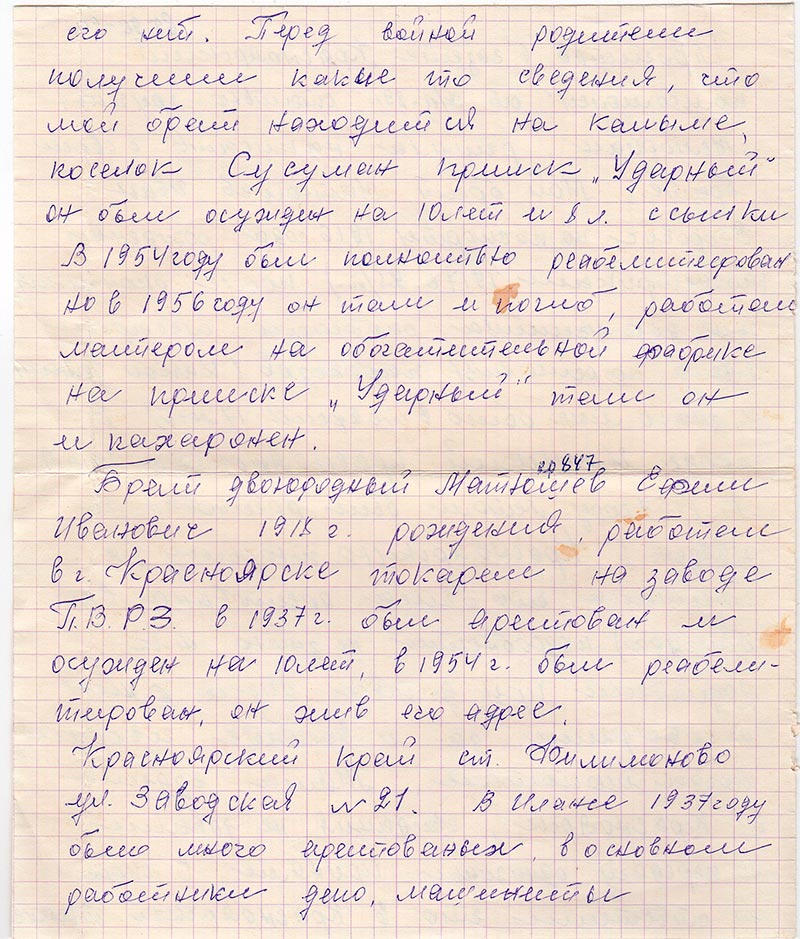 его нит. Перед войной родители
получили какие то сведения, что
мой брат находится на калыме,
поселок Сусуман прииск „Ударный"
он был осужден на 10 лет и 8 л. ссылки
В 1954 году был полностью реабелитирован
но в 1956 году он там и погиб, работал
мастером на обогатительной фабрике
на прииске „Ударный" там он
и пахаронен.
847
Брат двоюродный Матюшев Ефим
Иванович 1918 г. рождения, работал
в г. Красноярске токарем на заводе
П.В.Р.З. в 1937 г. был арестован и
осужден на 10 лет, в 1954 г. был реабели-
тирован, он жив его адрес.
Красноярский край ст. Филимоново
ул. Заводская № 21. В Иланске 1937 году
было много арестованых, в основном
работники депо, машинисты